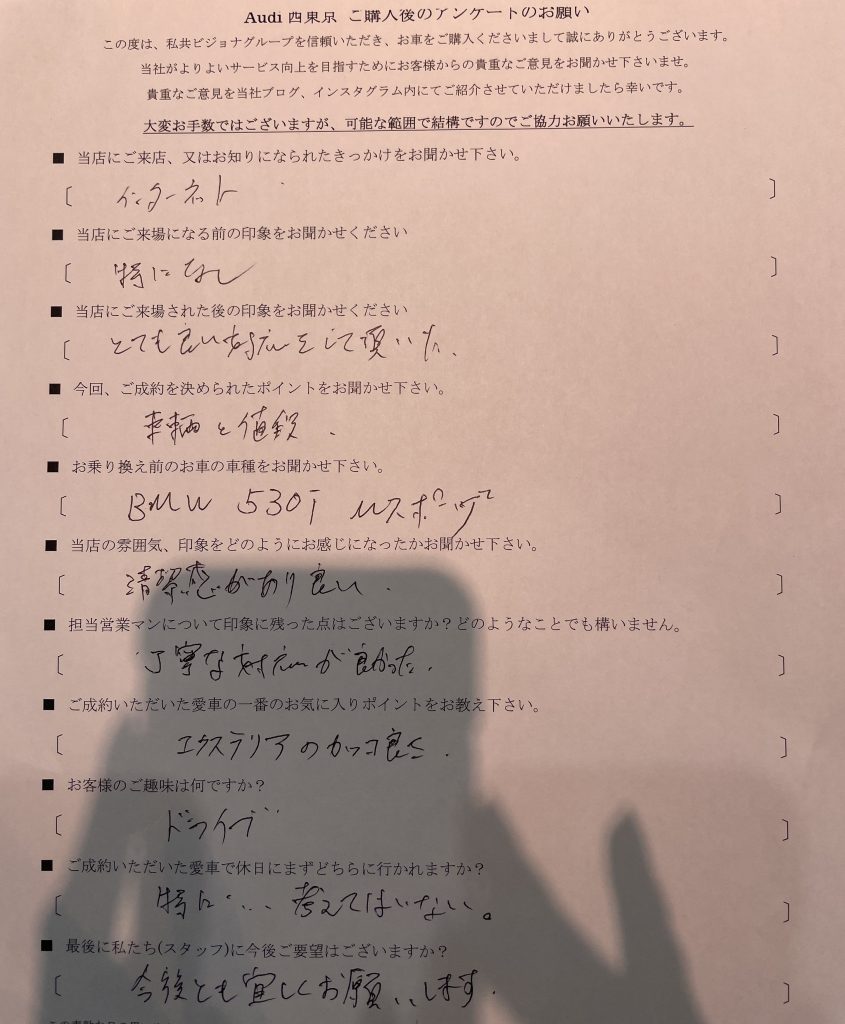 Audi 西東京 ご購入後のアンケートのお願い
この度は、私共ビジョナグループを信頼いただき、お車をご購入くださいまして誠にありがとうございます。
当社がよりよいサービス向上を目指すためにお客様からの貴重なご意見をお聞かせ下さいませ。
貴重なご意見を当社ブログ、インスタグラム内にてご紹介させていただけましたら幸いです。
大変お手数ではございますが、可能な範囲で結構ですのでご協力お願いいたします。
■ 当店にご来店、又はお知りになられたきっかけをお聞かせ下さい。
〔 インターネット 〕
■ 当店にご来場になる前の印象をお聞かせください
〔 特になし 〕
■ 当店にご来場された後の印象をお聞かせください
〔 とても良い対応をして頂いた. 〕
■ 今回、ご成約を決められたポイントをお聞かせ下さい。
〔 車輌と値段. 〕
■ お乗り換え前のお車の車種をお聞かせ下さい。
〔 BMW 530i Mスポーツ 〕
■ 当店の雰囲気、印象をどのようにお感じになったかお聞かせ下さい。
〔 清潔感があり良い. 〕
■ 担当営業マンについて印象に残った点はございますか？どのようなことでも構いません。
〔 丁寧な対応が良かった. 〕
■ ご成約いただいた愛車の一番のお気に入りポイントをお教え下さい。
〔 エクステリアのカッコ良さ. 〕
■ お客様のご趣味は何ですか？
〔 ドライブ 〕
■ ご成約いただいた愛車で休日にまずどちらに行かれますか？
〔 特に... 考えてはいない。 〕
■ 最後に私たち(スタッフ)に今後ご要望はございますか？
〔 今後とも宜しくお願いします. 〕